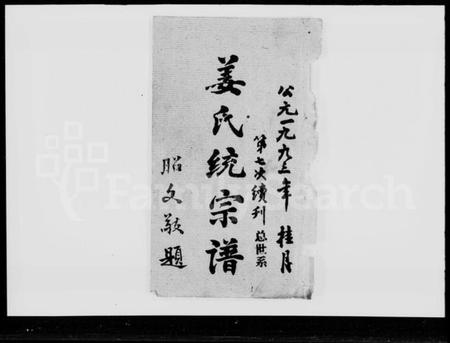 公元一九九三年 桂月
第七次續刊 总世系
姜氏统宗谱
昭文敬題
FamilySearch